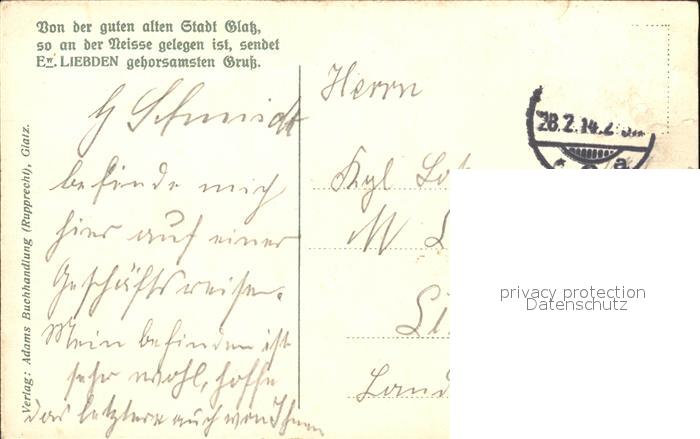 Von der guten alten Stadt Glatz,
so an der Neisse gelegen ist, sendet
Ew. LIEBDEN gehorsamsten Gruß.
Herrn
H Schmidt
28.2.14.2
befinde mich
Kgl
hier auf einer
M
Geschäftsreise.
Mein befinden ist
sehr wohl, hoffe
Land
das letztere auch von Ihnen
Verlag: Adams Buchhandlung (Rupprecht), Glatz.
privacy protection
Datenschutz